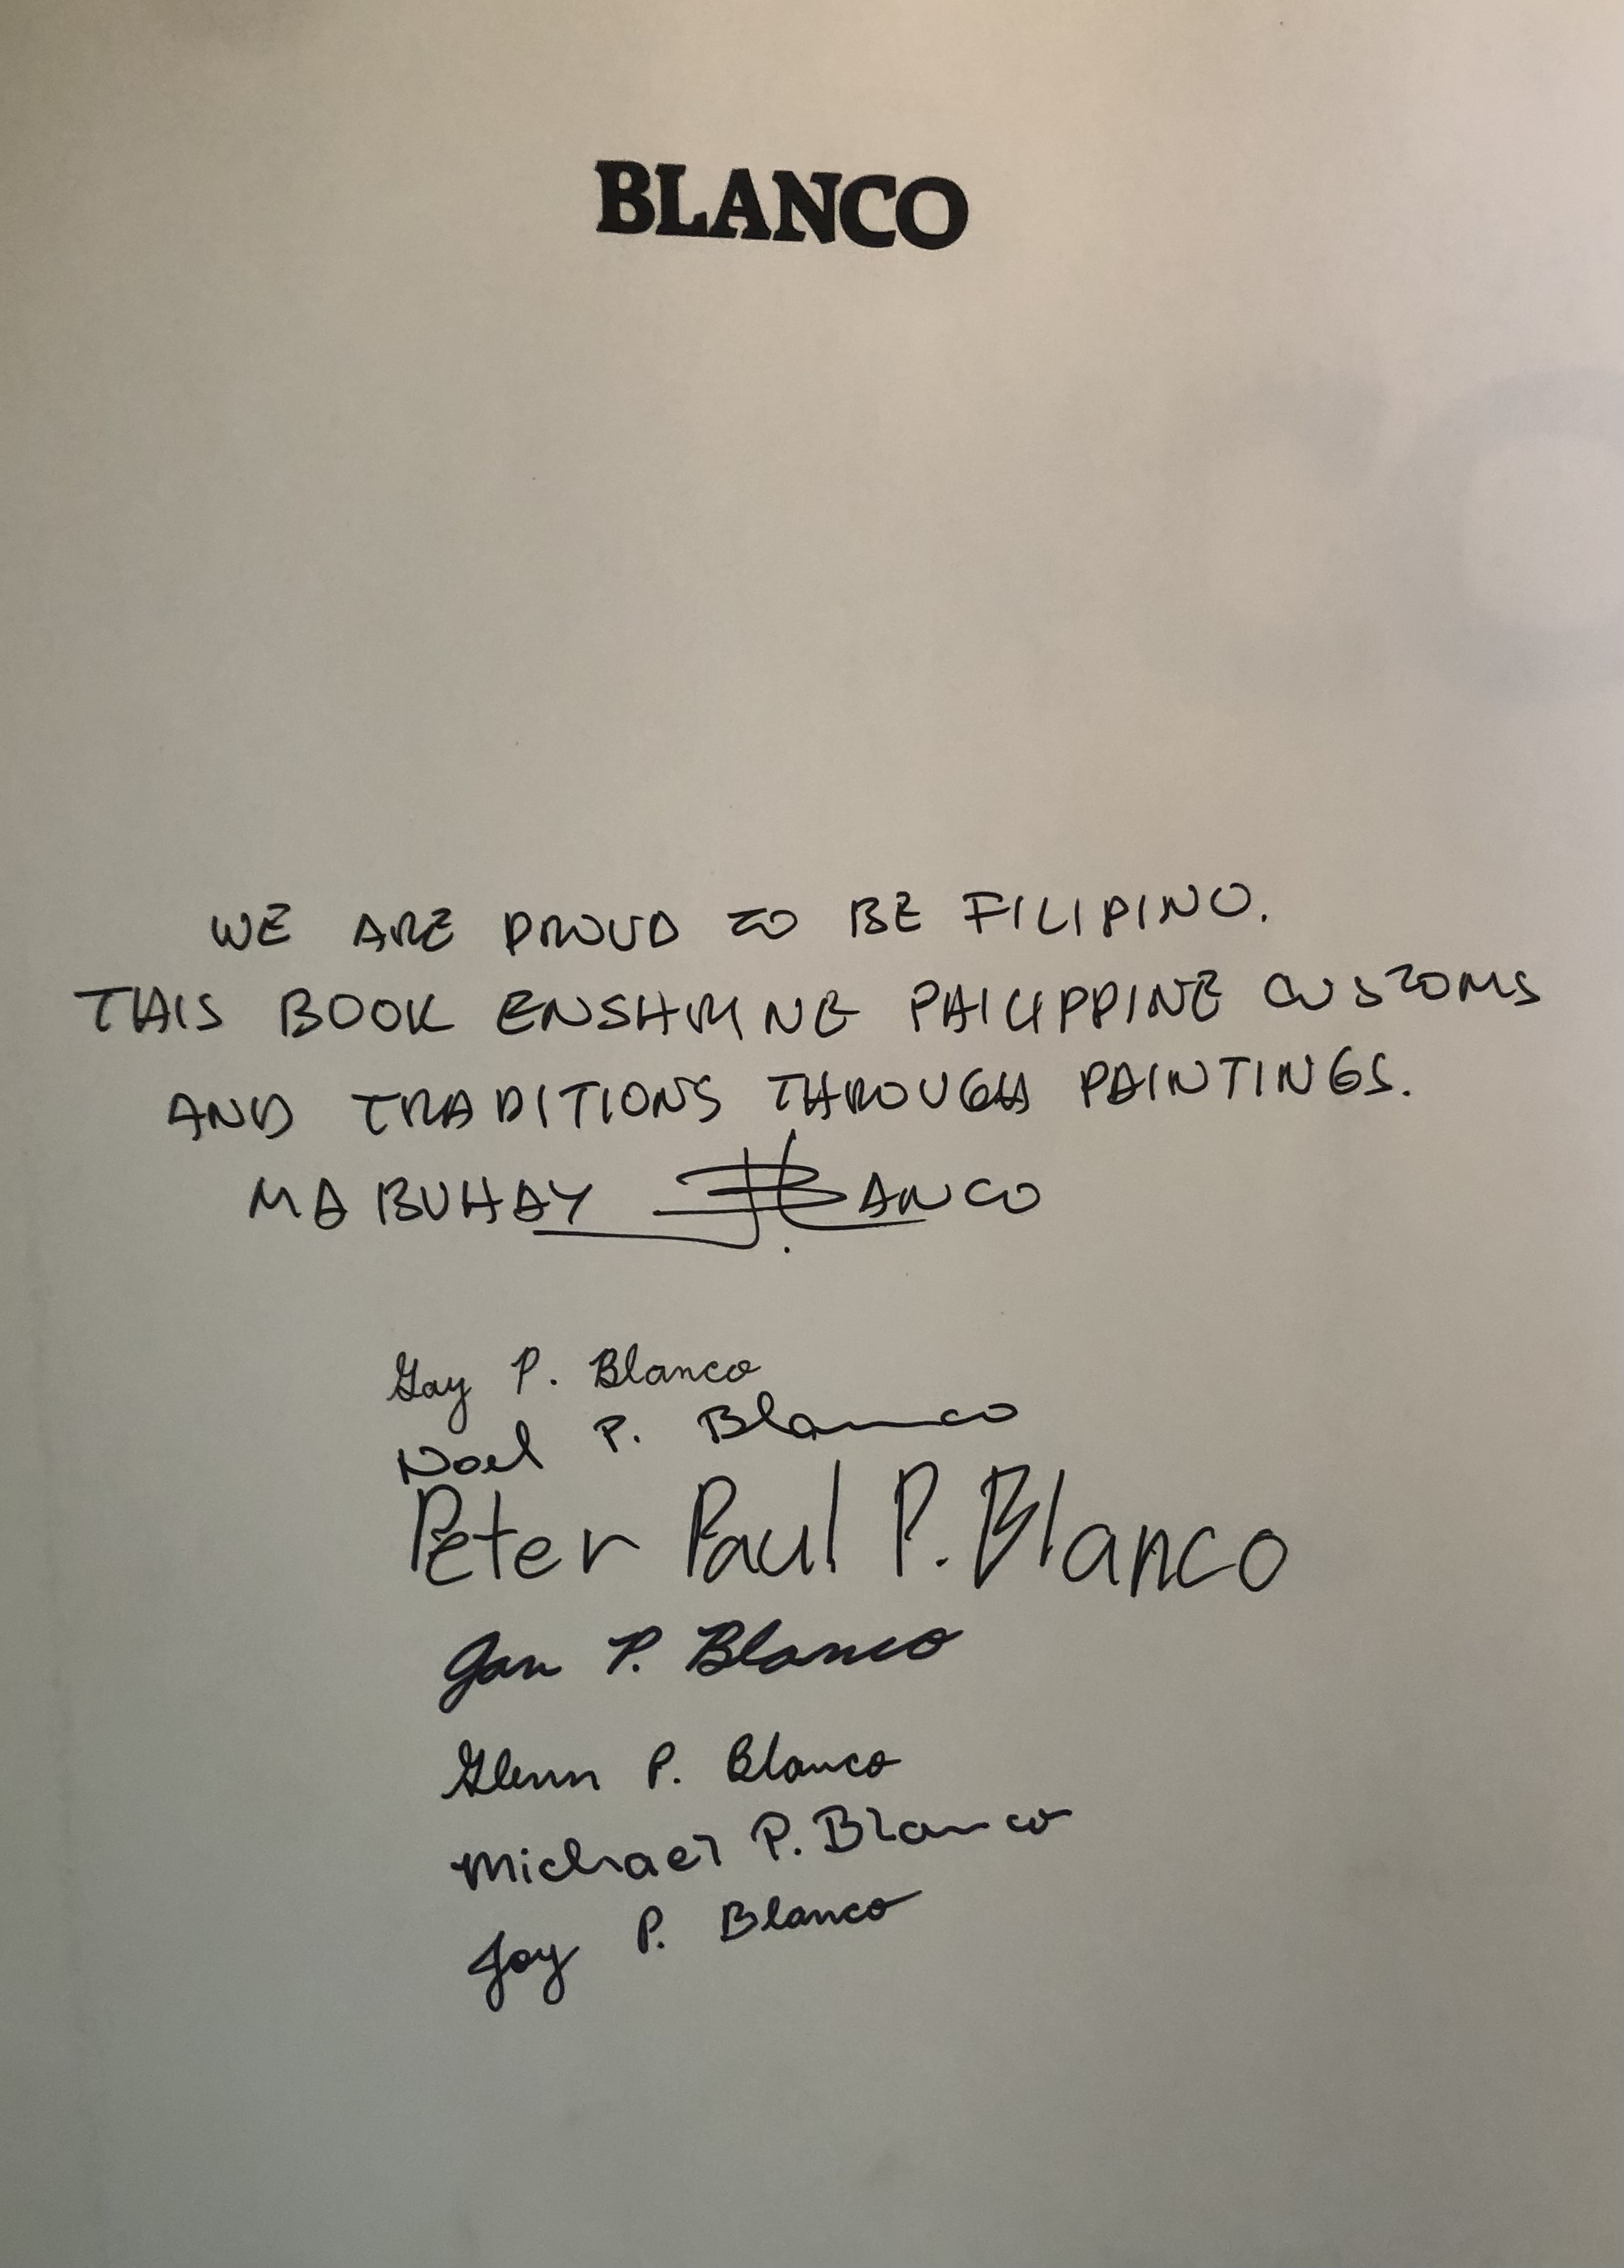 BLANCO
WE ARE PROUD TO BE FILIPINO.
THIS BOOK ENSHRINE PHILIPPINE CUSTOMS
AND TRADITIONS THROUGH PAINTINGS.
MABUHAY BLANCO
Gay P. Blanco
Noel P. Blanco
Peter Paul P. Blanco
Jan P. Blanco
Glenn P. Blanco
Michael P. Blanco
Joy P. Blanco